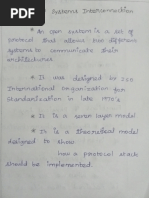 Systems Interconnection
* An open system is a set of
protocol that allows two different
systems to communicate their
architectures
* It was designed by ISO
International organisation for
Standardisation in late 1970's
* It is a seven layer model
* It is a theoretical model
designed to show
how a protocol stack
should be implemented.